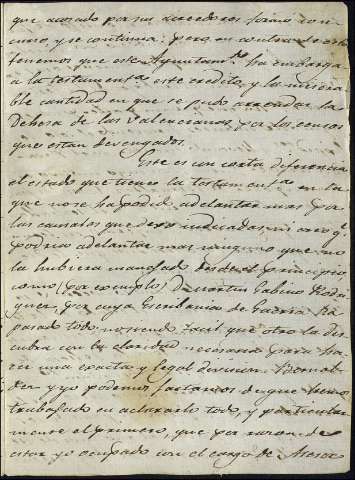 que acosado por sus acreedores formó con
curso y se continua: pero en contra de esto
tenemos que este Ayuntam.to ha embarga
a la testament.a este credito, y la misera
ble cantidad en que se pudo arrendar la
Dehesa de los Valencianos, por los censos
que estan devengados.
Este es con corta diferencia
el estado que tiene la testament.a en la
que no se ha podido adelantar mas por
las causales que dexo indicadas, ni creo q.e
podria adelantar mas ninguno que no
la hubiera manejado desde el principio
como (por exemplo) D. Martin Gabino Rodri
guez, por cuya Escribania de Guerra ha
pasado todo, no siendo facil que otro la des
cubra con la claridad necesaria para ha
cer una exacta y legal division.
y yo podemos jactarnos de que hemos
trabajado en aclararlo todo, y particular
mente el primero, que por razon de
estar yo ocupado con el cargo de Asesor